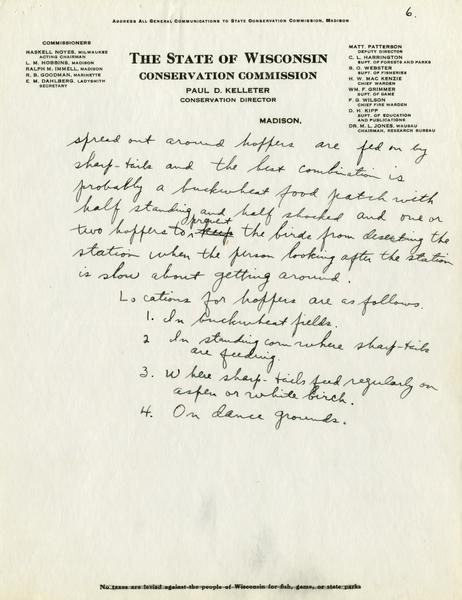 Address All General Communications to State Conservation Commission, Madison
6.
COMMISSIONERS
HASKELL NOYES, MILWAUKEE
ACTING CHAIRMAN
L. M. HOBBINS, MADISON
RALPH M. IMMELL, MADISON
R. B. GOODMAN, MARINETTE
E. M. DAHLBERG, LADYSMITH
SECRETARY
THE STATE OF WISCONSIN
CONSERVATION COMMISSION
PAUL D. KELLETER
CONSERVATION DIRECTOR
MADISON,
MATT. PATTERSON
DEPUTY DIRECTOR
C. L. HARRINGTON
SUPT. OF FORESTS AND PARKS
B. O. WEBSTER
SUPT. OF FISHERIES
H. W. MAC KENZIE
CHIEF WARDEN
WM. F. GRIMMER
SUPT. OF GAME
F. G. WILSON
CHIEF FIRE WARDEN
D. H. KIPP
SUPT. OF EDUCATION
AND PUBLICATIONS
DR. M. L. JONES, WAUSAU
CHAIRMAN, RESEARCH BUREAU
spread out around hoppers are fed on by
sharp-tails and the best combination is
probably a buckwheat food patch with
half standing and half shocked and one or
two hoppers to prevent keep the birds from deserting the
station when the person looking after the station
is slow about getting around.
Locations for hoppers are as follows.
1. In buckwheat fields.
2 In standing corn where sharp-tails
are feeding.
3. Where sharp-tails feed regularly on
aspen or white birch.
4. On dance grounds.
No taxes are levied against the people of Wisconsin for fish, game, or state parks